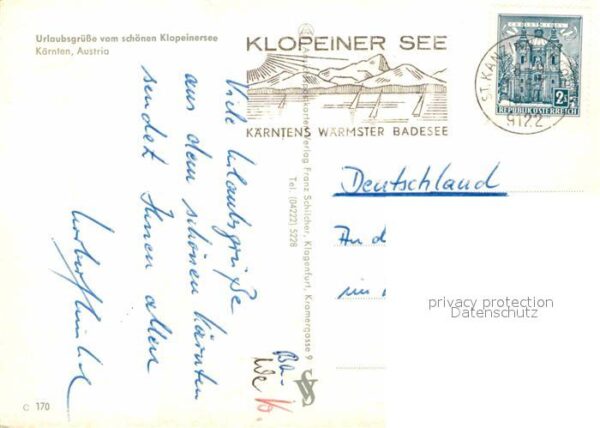 Urlaubsgrüße vom schönen Klopeinersee
Kärnten, Austria
KLOPEINER SEE
KÄRNTENS WÄRMSTER BADESEE
ST. KANZI
9122
2S
REPUBLIK ÖSTERREICH
Viele Urlaubsgrüße
aus dem schönen Kärnten
sendet Ihnen allen
Ansichtskartenverlag Franz Schilcher, Klagenfurt, Kramergasse 9
Tel. (04222) 5228
Deutschland
An d
im
privacy protection
Datenschutz
C 170